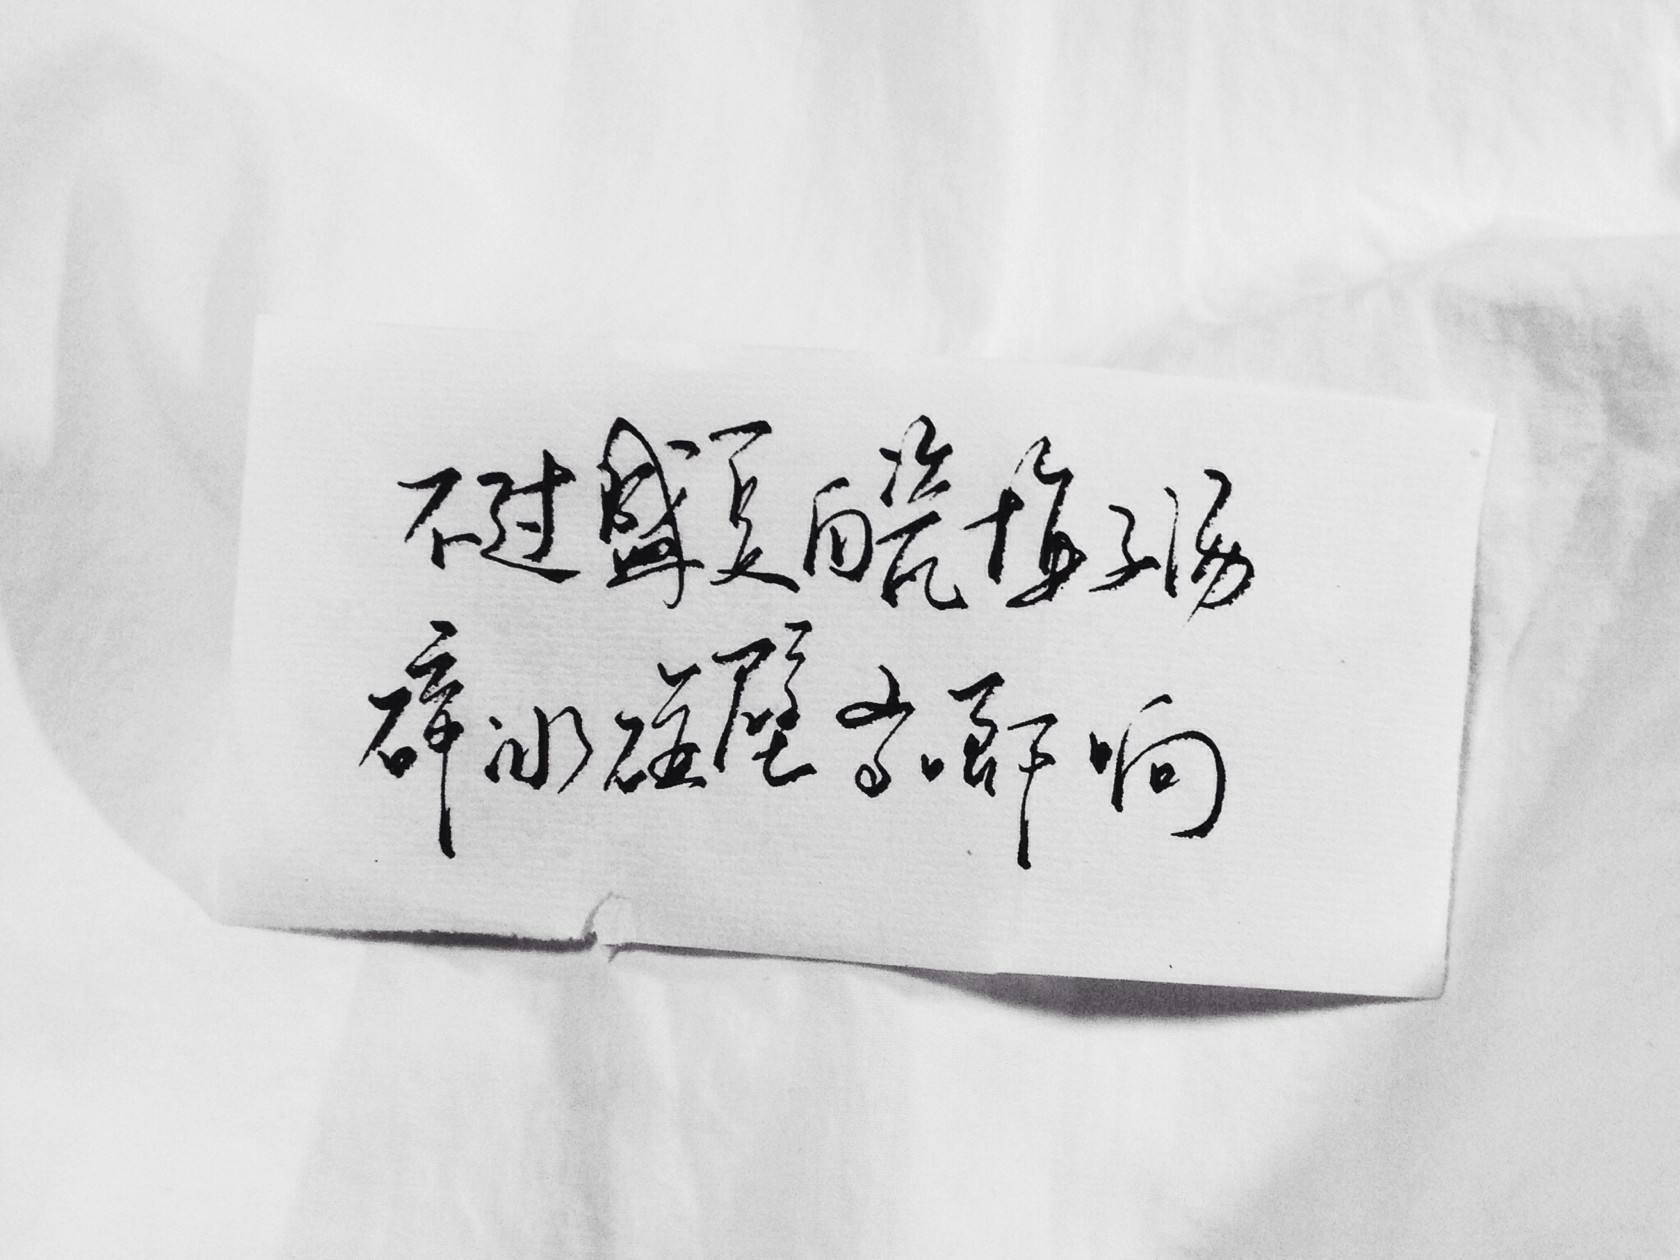 不过盛夏白瓷梅子汤
碎冰碰壁当啷响